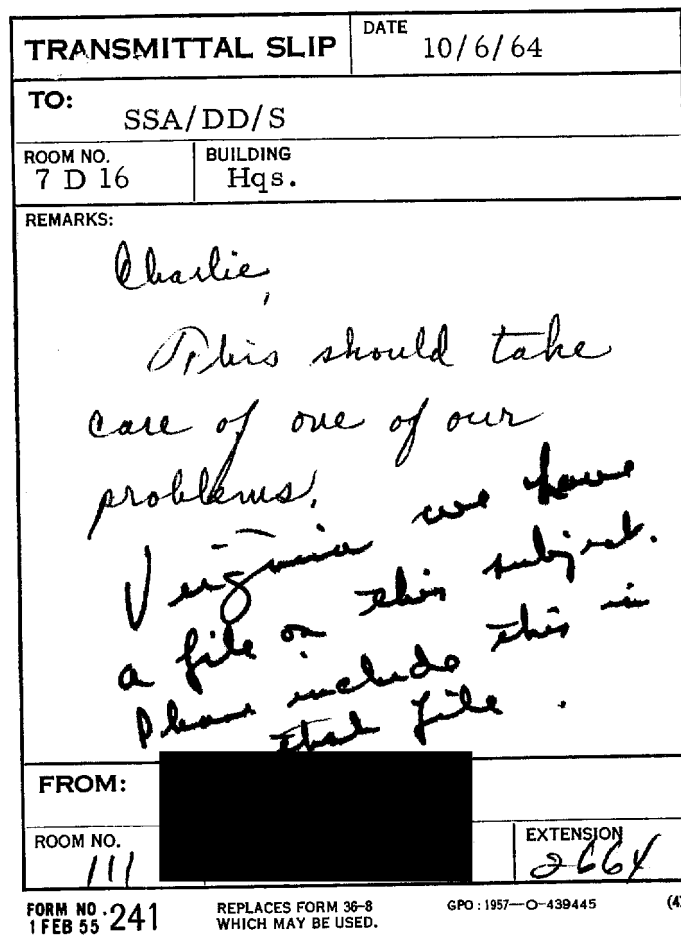 TRANSMITTAL SLIP
DATE
10/6/64
TO:
SSA/DD/S
ROOM NO.
7 D 16
BUILDING
Hqs.
REMARKS:
Charlie,
This should take
care of one of our
problems.
Virginia we have
a file on this subject.
Please include this in
that file.
FROM:
ROOM NO.
111
EXTENSION
2664
FORM NO. 241
1 FEB 55
REPLACES FORM 36-8
WHICH MAY BE USED.
GPO : 1957—O-439445